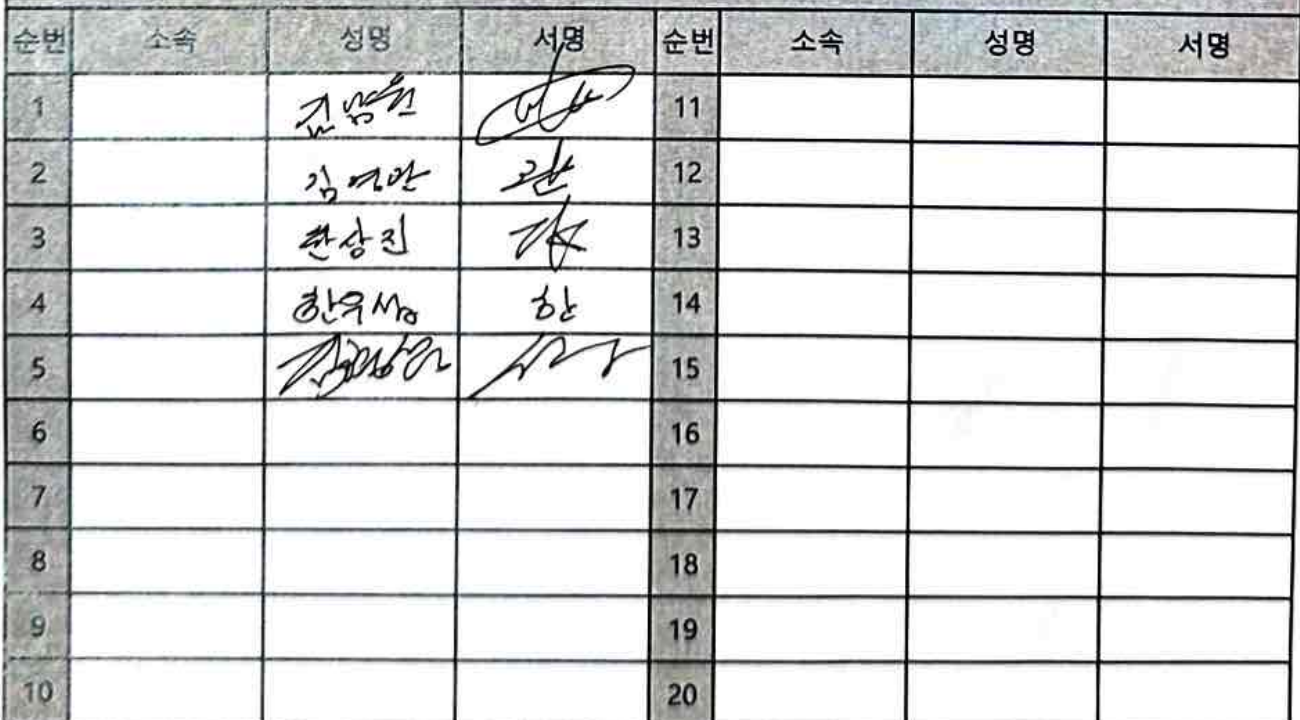 순번 소속 성명 서명 순번 소속 성명 서명
1 김남원 11
2 김영만 관 12
3 한상진 13
4 한우성 한 14
5 15
6 16
7 17
8 18
9 19
10 20